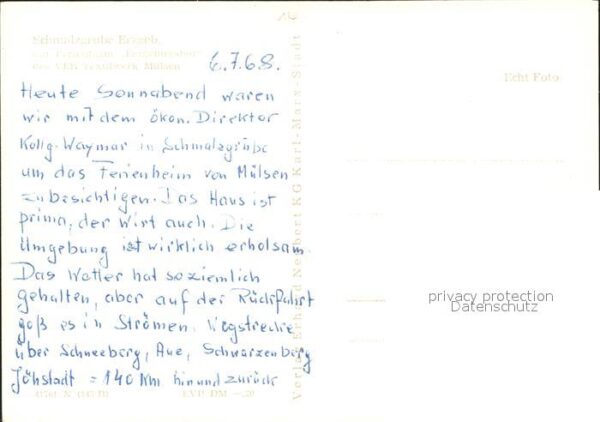 Schmalzgrube Erzgeb.
mit Ferienheim "Erzgebirgshof"
des VEB Textilwerk Mülsen
6.7.68.
Heute Sonnabend waren
wir mit dem ökon. Direktor
Kollg. Waymar in Schmalzgrube
um das Ferienheim von Mülsen
zubesichtigen. Das Haus ist
prima, der Wirt auch. Die
Umgebung ist wirklich erholsam.
Das Wetter hat soziemlich
gehalten, aber auf der Rückfahrt
goß es in Strömen. Wegstrecke
über Schneeberg, Aue, Schwarzenberg
Jöhstadt = 140 Km hin und zurück
EVP DM -,20
Verlag Erhard Neubert KG Karl-Marx-Stadt
Echt Foto
privacy protection
Datenschutz